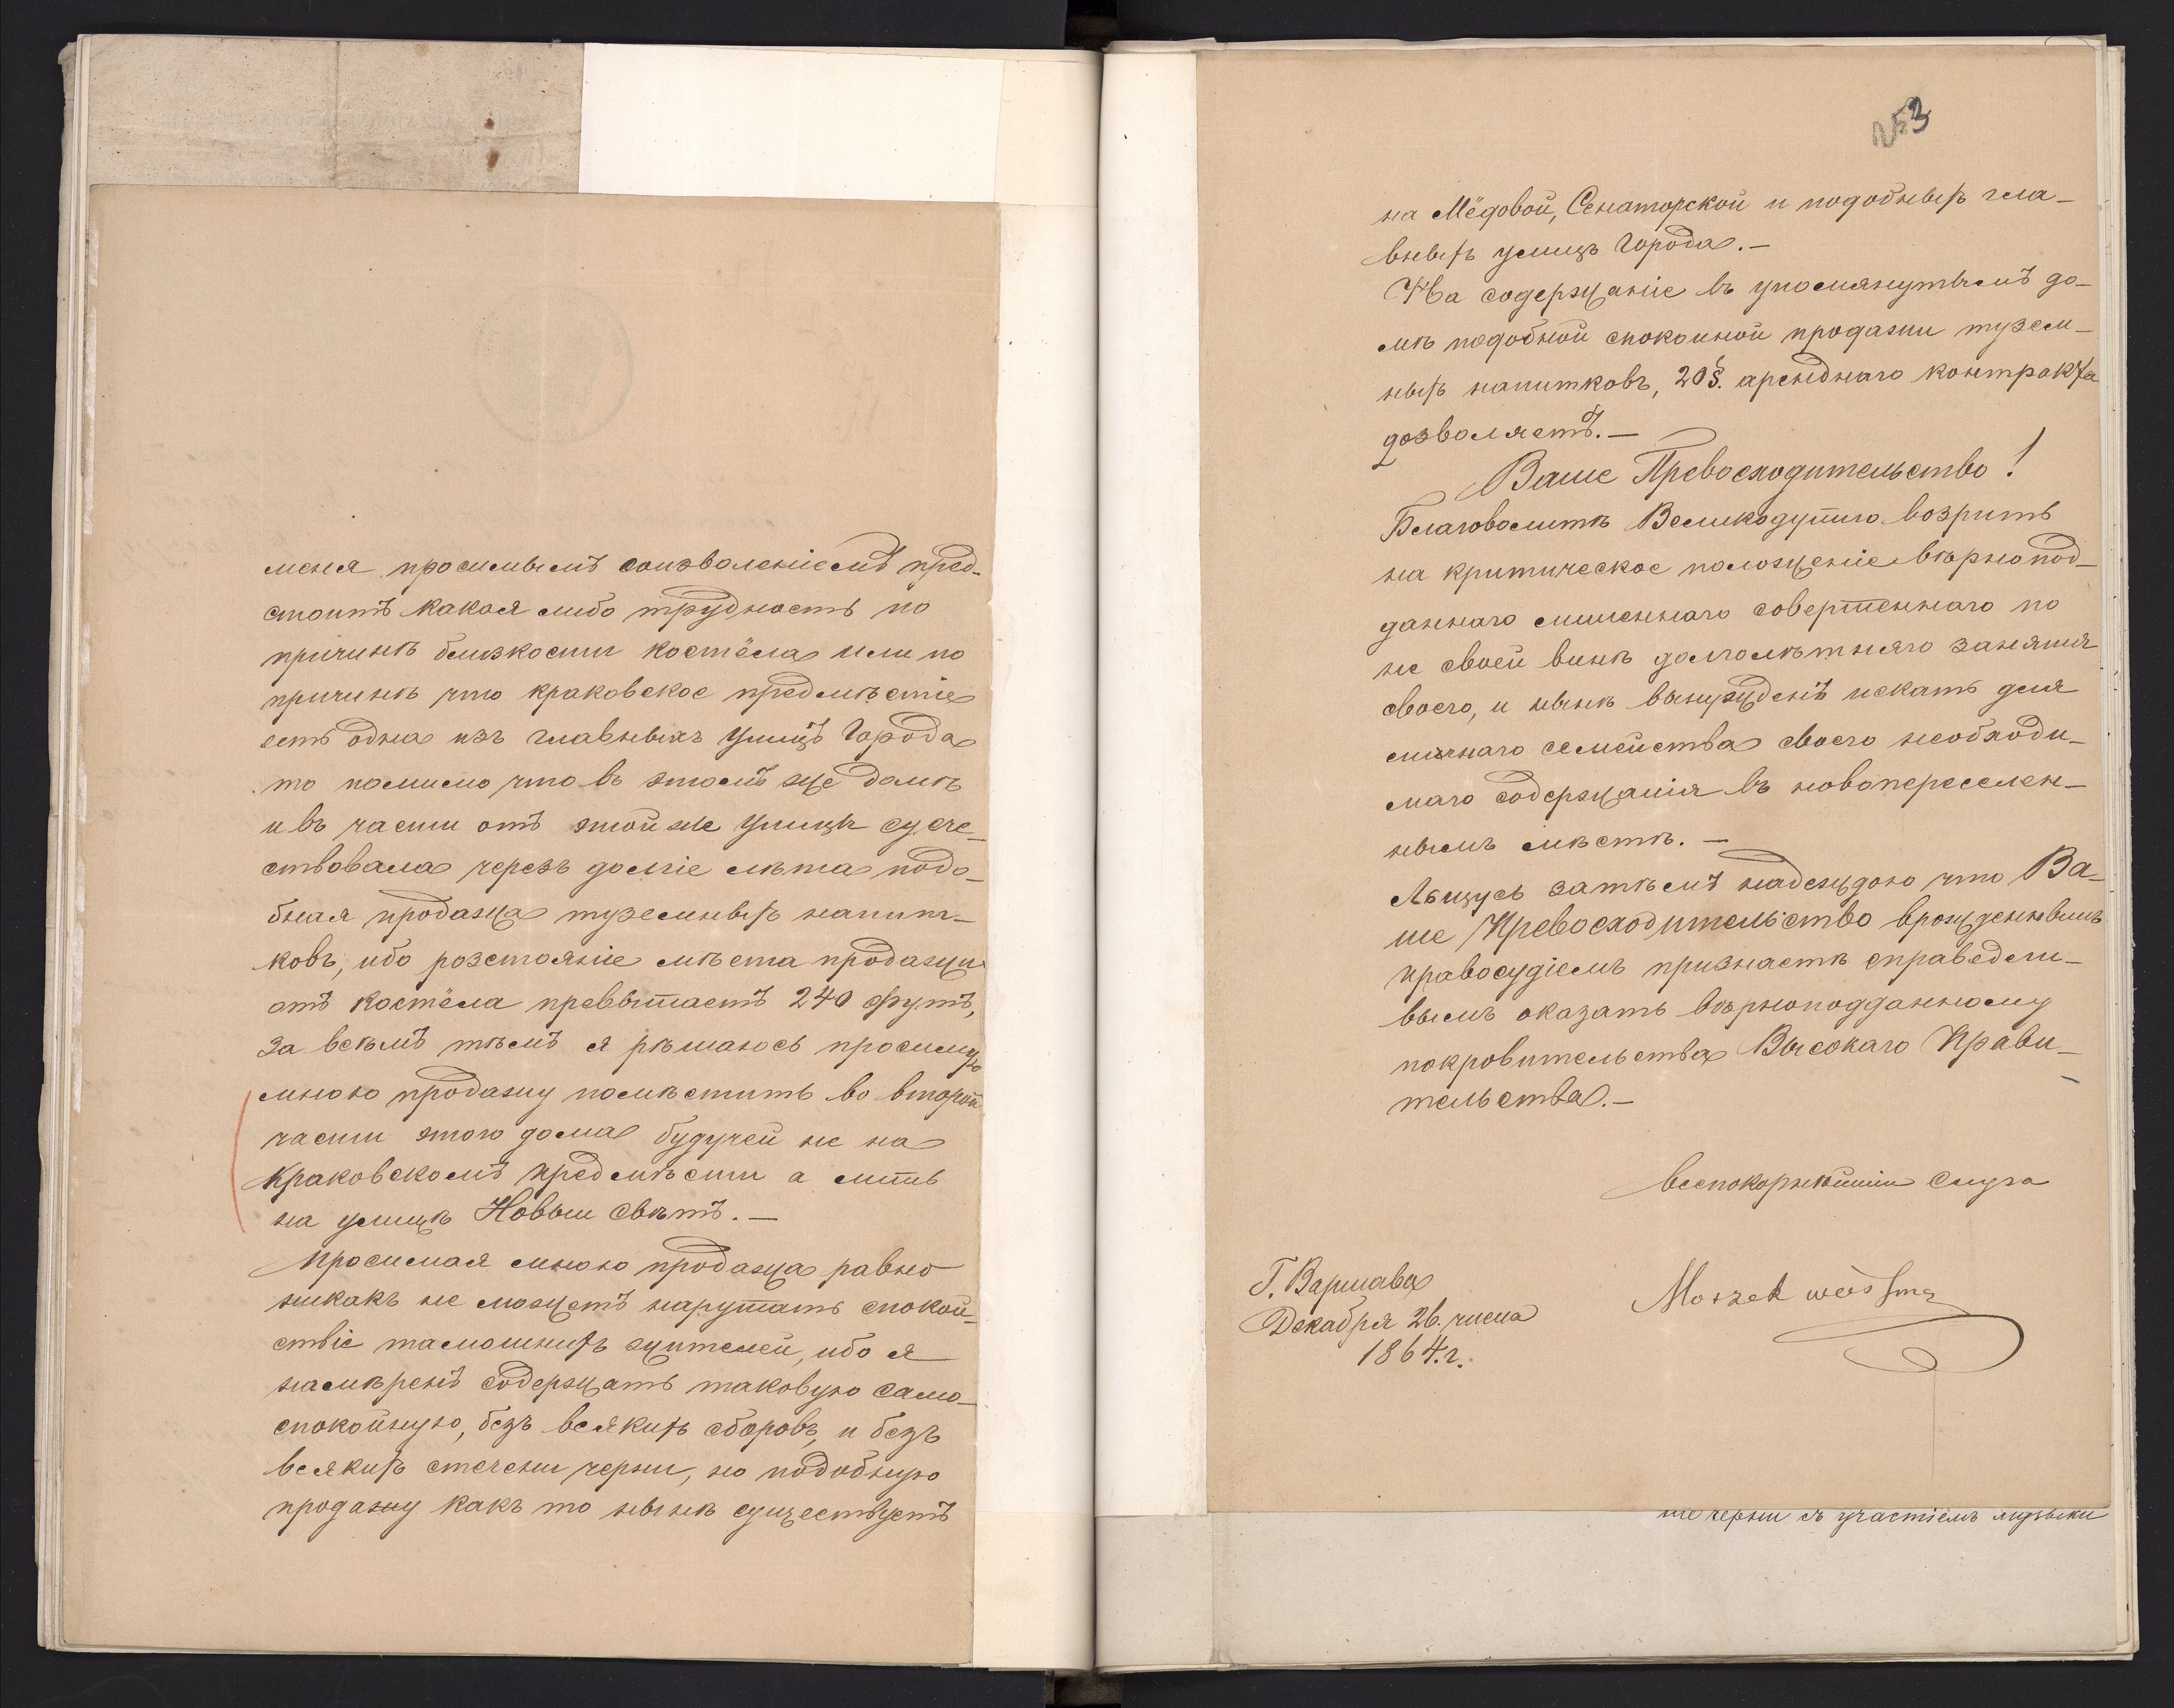 меня просимымъ соизволеніемъ пред-
стоитъ какая либо трудность по
причинѣ близкости костёла или по
причинѣ что краковское предмѣстіе
есть одна изъ главныхъ улицъ Города
то помимо что въ этомъ же домѣ
и въ части отъ этой же улицы суще-
ствовала черезъ долгіе лѣта подо-
бная продажа туземныхъ напит-
ковъ, ибо розстояніе мѣста продажи
отъ костёла превышаетъ 240 футъ,
за всѣмъ тѣмъ я рѣшаюсь просимую
мною продажу помѣстить во второй
части этого дома будучей не на
Краковскомъ предмѣсти а лишь
на улицѣ Новыи Свѣтъ.—
Просимая мною продажа равно
никакъ не можетъ нарушать спокой-
ствіе тамошнихъ жителей, ибо я
намѣренъ содержать таковую само-
спокойную, безъ всякихъ сборовъ, и безъ
всякихъ стечени черни, но подобную
продажу какъ то нынѣ существуетъ
253
на Мёдовой, Сенаторской и подобныхъ гла-
вныхъ улицъ Города.—
На содержаніе въ упомянутымъ до-
мѣ подобной спокоиной продажи тузем-
ныхъ напитковъ, 20§. аренднаго контракта
дозволяетъ.—
Ваше Превосходительство!
Благоволитѣ Великодушно возрить
на критическое положеніе вѣрнопод-
даннаго лишеннаго совершеннаго по
не своей винѣ долголѣтняго занятія
своего, и нынѣ вынужденъ искать для
личнаго семейства своего необходи-
маго содержанія въ новопереселен-
нымъ мѣстѣ.—
Льщусь затѣмъ надеждою что Ва-
ше Превосходительство врожденнымъ
правосудіемъ признаетъ справедли-
вымъ оказать вѣрноподданному
покровительства Высокаго Прави-
тельства.—
всепокорнѣйшіи слуга
Г. Варшава
Декабря 26. числа
1864.г.
Moszek
черни съ участіемъ музыки